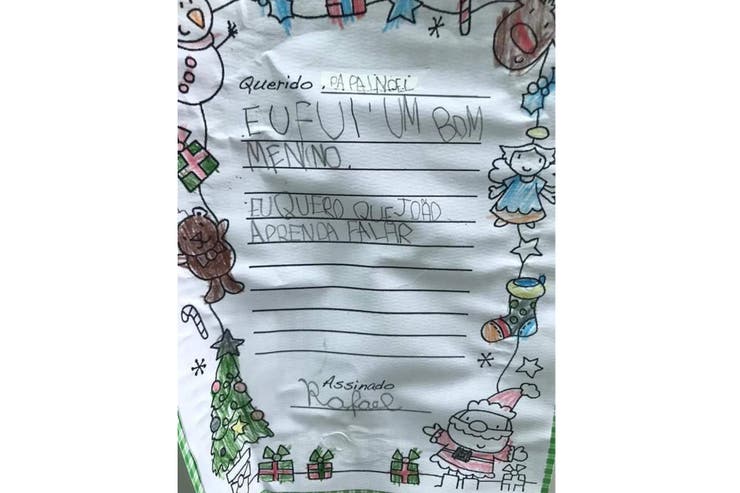 Querido PAPAI NOEL
EU FUI UM BOM
MENINO.
EU QUERO QUE JOÃO
APRENDA FALAR
Assinado
Rafael